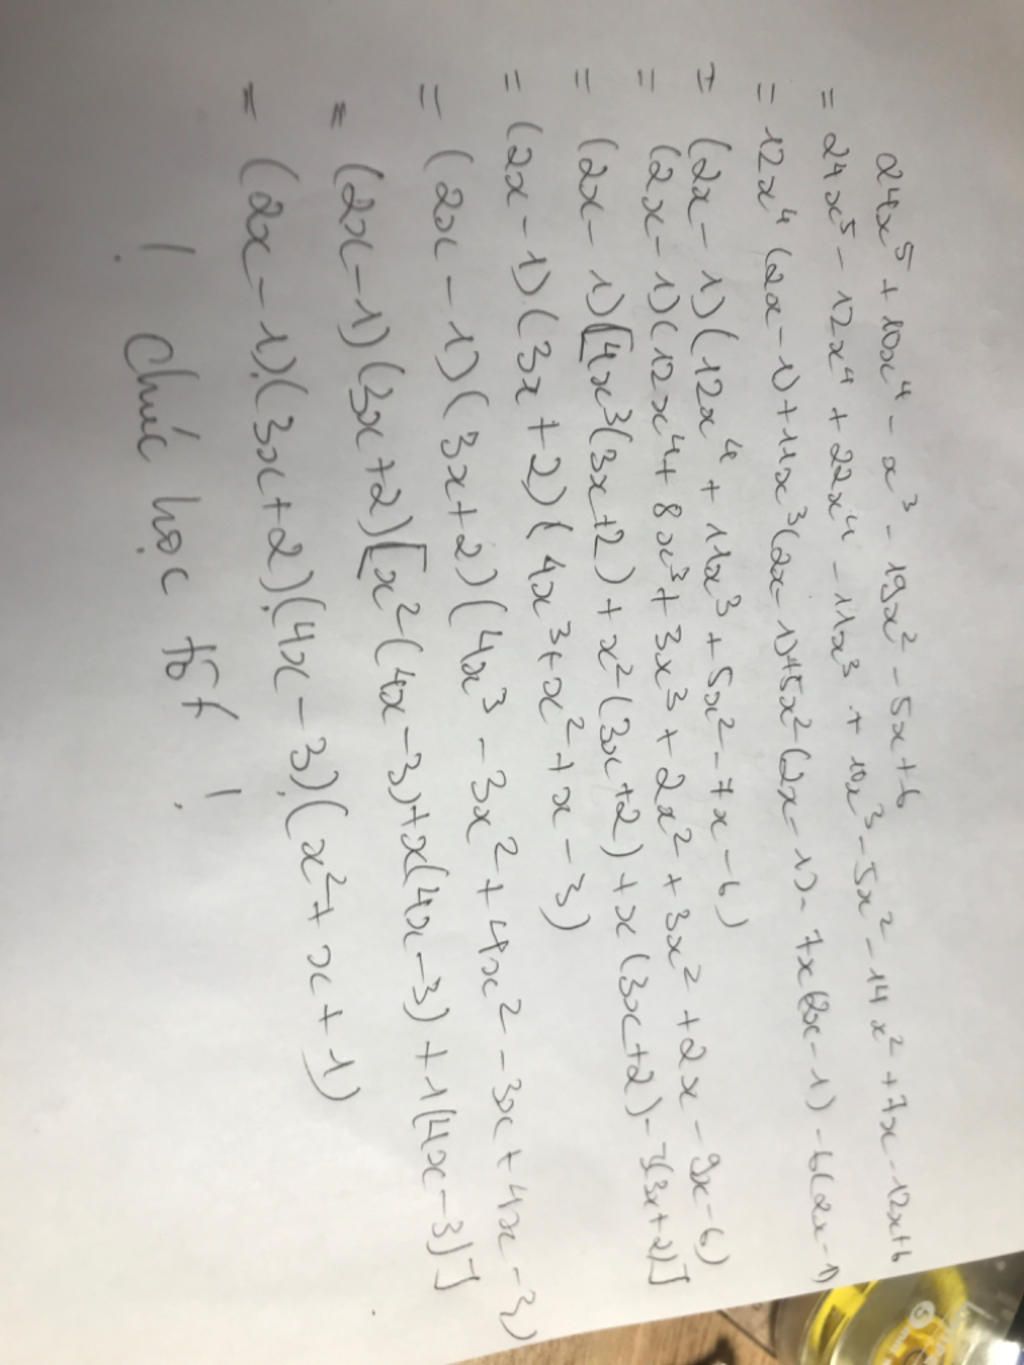 24x⁵ + 10x⁴ - x³ - 19x² - 5x + 6
= 24x⁵ - 12x⁴ + 22x⁴ - 11x³ + 10x³ - 5x² - 14x² + 7x - 12x + 6
= 12x⁴ (2x - 1) + 11x³ (2x - 1) + 5x² (2x - 1) - 7x (2x - 1) - 6 (2x - 1)
= (2x - 1) (12x⁴ + 11x³ + 5x² - 7x - 6)
= (2x - 1) (12x⁴ + 8x³ + 3x³ + 2x² + 3x² + 2x - 9x - 6)
= (2x - 1) [4x³ (3x + 2) + x² (3x + 2) + x (3x + 2) - 3 (3x + 2)]
= (2x - 1) (3x + 2) (4x³ + x² + x - 3)
= (2x - 1) (3x + 2) (4x³ - 3x² + 4x² - 3x + 4x - 3)
= (2x - 1) (3x + 2) [x² (4x - 3) + x (4x - 3) + 1 (4x - 3)]
= (2x - 1) (3x + 2) (4x - 3) (x² + x + 1)
! Chúc học tốt !